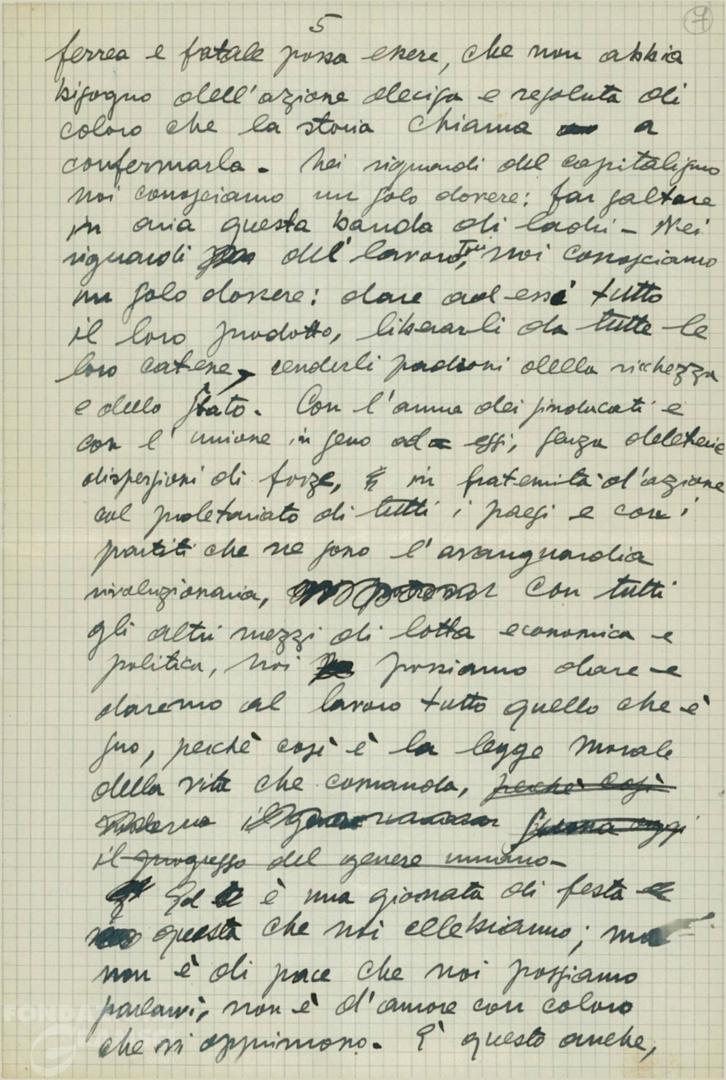 5
7
ferrea e fatale possa essere, che non abbia
bisogno dell'azione decisa e resoluta di
coloro che la storia chiama a
confermarla. Nei riguardi del capitalismo
noi conosciamo un solo dovere: far saltare
in aria questa banda di ladri - Nei
riguardi dei lavoratori, noi conosciamo
un solo dovere: dare ad essi tutto
il loro prodotto, liberarli da tutte le
loro catene, renderli padroni della richezza
e dello Stato. Con l'arma dei sindacati e
con l'unione in seno ad essi, senza deleterie
dispersioni di forze, in fraternità d'azione
col proletariato di tutti i paesi e con i
partiti che ne sono l'avanguardia
rivoluzionaria, con tutti
gli altri mezzi di lotta economica e
politica, noi possiamo dare e
daremo al lavoro tutto quello che è
suo, perchè così è la legge morale
della vita che comanda, perchè così
il progresso del genere umano -
Ed è una giornata di festa
questa che noi celebriamo; ma
non è di pace che noi possiamo
parlarvi, non è d'amore con coloro
che vi opprimono. È questo anche,
FONDAZ